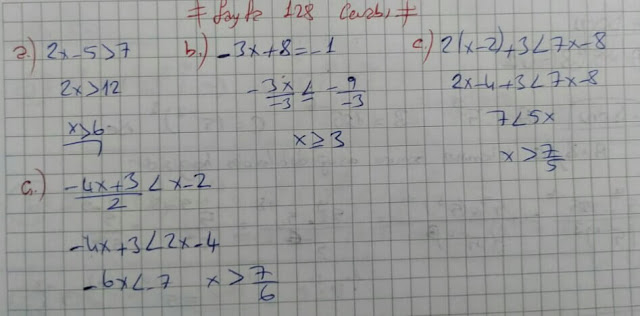 ≠ Sayfa 128 Cevabı ≠
a) 2x-5>7
2x>12
x>6
b.) -3x+8=-1
-3x/-3 ≤ -9/-3
x≥3
c) 2(x-2)+3<7x-8
2x-4+3<7x-8
7<5x
x>7/5
ç.) -4x+3/2 < x-2
-4x+3<2x-4
-6x<-7 x>7/6